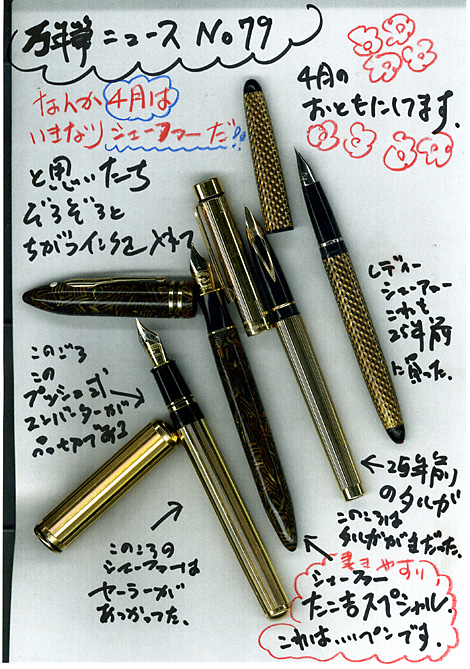 万年筆ニュース No79
なんか4月は
いきなりシェーファーだ!!
4月の
おともにしてます。
と思いたち
ぞろぞろと
ちがうインク入れて
レディー
シェーファー
これも
25年前
に買った。
このごろ
この
プッシュ式
コンバーターが
←25年前
のタルガ
このころは
タルガがまだった。
このころの
シェーファーは
セーラーが
あつかってた。
書きやすい
シェーファー
たこ吉スペシャル。
これはいいペンです。